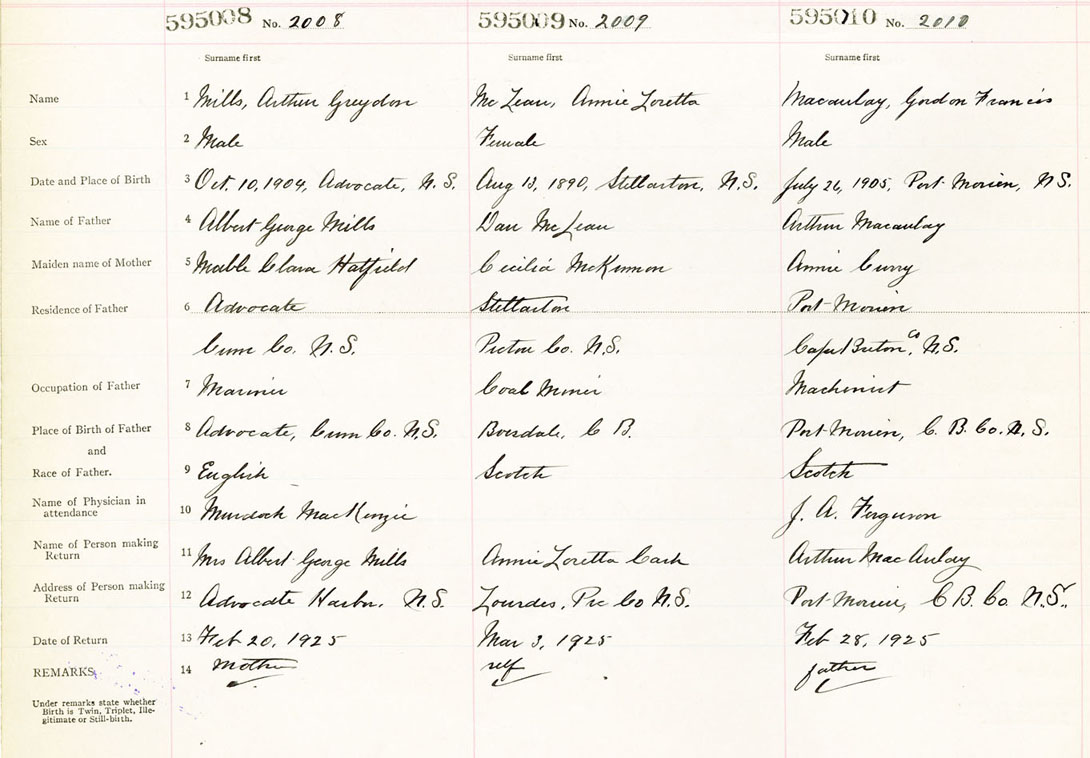 595008 No. 2008 595009 No. 2009 595010 No. 2010
Surname first Surname first Surname first
Name 1 Mills, Arthur Greydon McLean, Annie Loretta Macaulay, Gordon Francis
Sex 2 Male Female Male
Date and Place of Birth 3 Oct. 10, 1904, Advocate, N.S. Aug 13, 1890, Stellarton, N.S. July 26, 1905, Port Morien, N.S.
Name of Father 4 Albert George Mills Dan McLean Arthur Macaulay
Maiden name of Mother 5 Mable Clara Hatfield Cecilia McKinnon Annie Curry
Residence of Father 6 Advocate Stellarton Port Morien
Cum Co. N.S. Pictou Co. N.S. Cape Breton, Co N.S.
Occupation of Father 7 Mariner Coal Miner Machinist
Place of Birth of Father 8 Advocate, Cum Co. N.S. Boisdale, C B. Port Morien, C. B. Co. N.S.
and
Race of Father. 9 English Scotch Scotch
Name of Physician in
attendance 10 Murdock MacKenzie J. A. Ferguson
Name of Person making
Return 11 Mrs Albert George Mills Annie Loretta Cash Arthur MacAulay
Address of Person making
Return 12 Advocate Harbor, N.S. Lourdes, Pic Co N.S. Port Morien, C B. Co. N.S.
Date of Return 13 Feb 20, 1925 Mar 3, 1925 Feb 28, 1925
REMARKS 14 Mother self father
Under remarks state whether
Birth is Twin, Triplet, Ille-
gitimate or Still-birth.